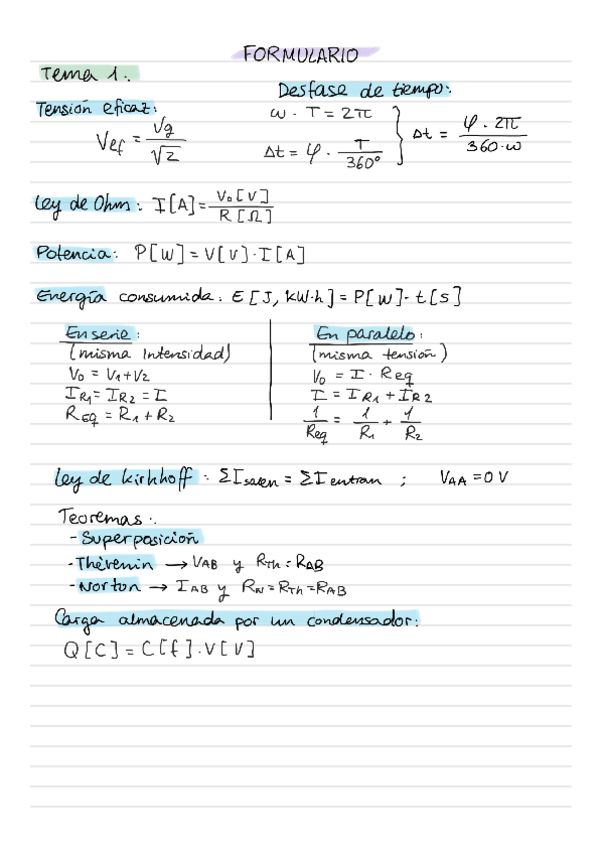 FORMULARIO
Tema 1.
Desfase de tiempo:
Tensión eficaz:
Vef = Vg / √2
ω · T = 2π
Δt = φ · T / 360°
} Δt = φ · 2π / 360·ω
Ley de Ohm: I[A] = V₀[V] / R[Ω]
Potencia: P[W] = V[V] · I[A]
Energía consumida: E[J, kW·h] = P[W] · t[s]
En serie:
(misma intensidad)
V₀ = V₁ + V₂
I R1 = I R2 = I
R EQ = R₁ + R₂
En paralelo:
(misma tensión)
V₀ = I · Req
I = I R1 + I R2
1/Req = 1/R₁ + 1/R₂
Ley de kirhhoff: ΣI salen = ΣI entran ; V AA = 0 V
Teoremas:
- Superposición
- Thèvenin → V AB y R Th = R AB
- Norton → I AB y R N = R Th = R AB
Carga almacenada por un condensador:
Q[C] = C[f] · V[V]